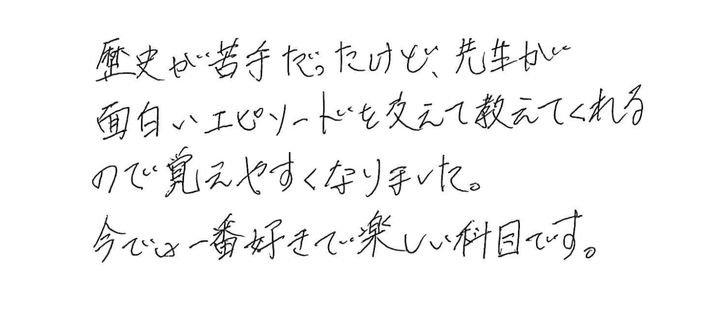 歴史が苦手だったけど、先生が
面白いエピソードを交えて教えてくれる
ので覚えやすくなりました。
今では一番好きで楽しい科目です。